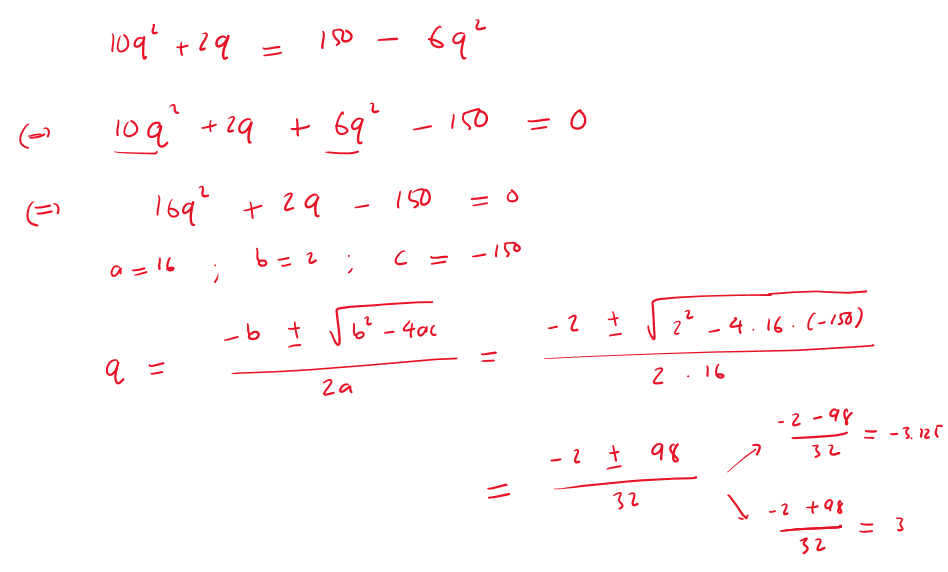 10q² + 2q = 150 - 6q²
(=) 10q² + 2q + 6q² - 150 = 0
(=) 16q² + 2q - 150 = 0
a = 16 ; b = 2 ; c = -150
q = (-b ± √(b² - 4ac)) / 2a = (-2 ± √(2² - 4 · 16 · (-150))) / 2 · 16
= (-2 ± 98) / 32
↗ (-2 - 98) / 32 = -3.125
↘ (-2 + 98) / 32 = 3